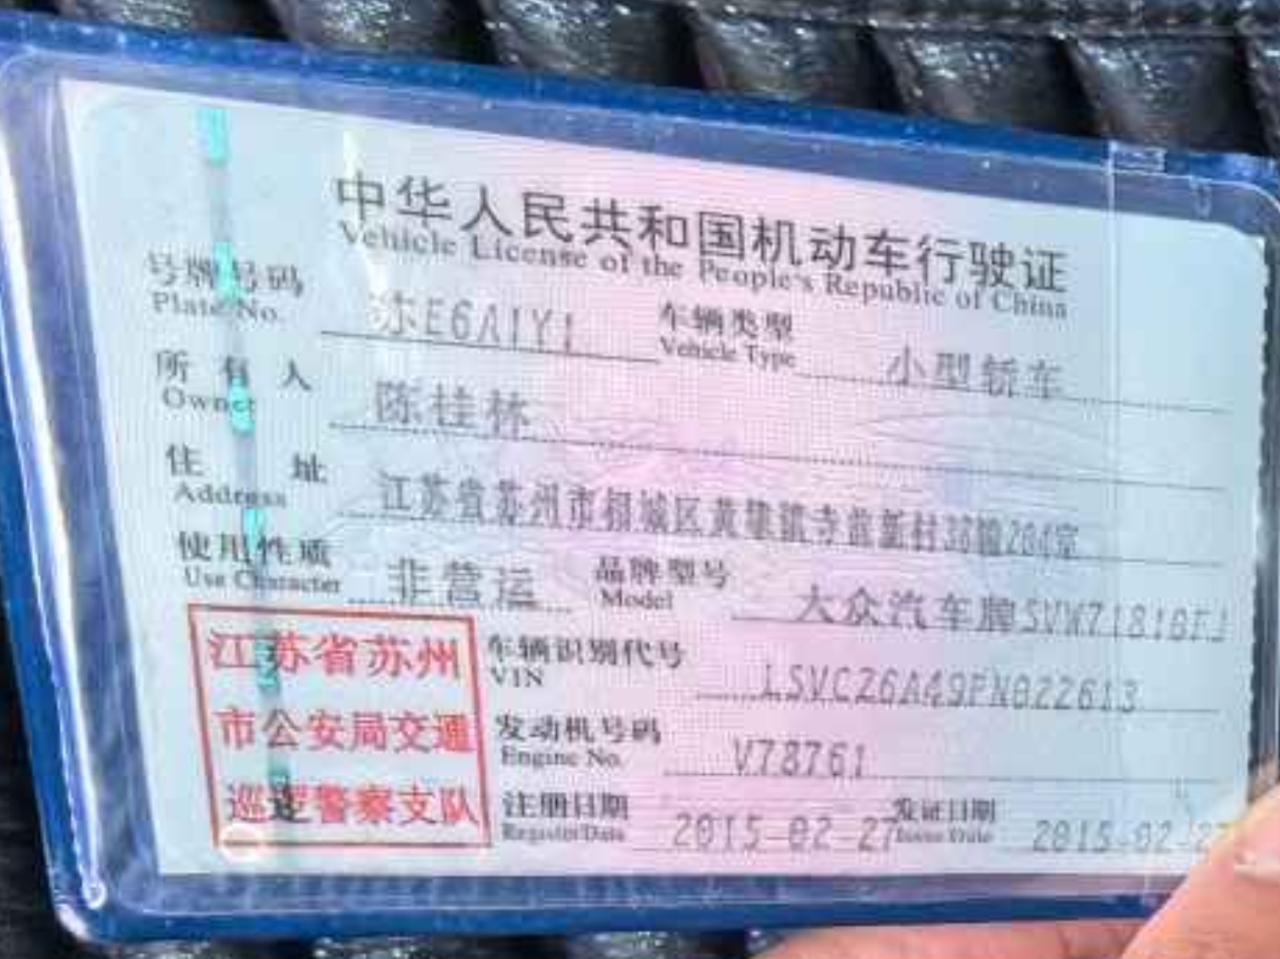 中华人民共和国机动车行驶证
Vehicle License of the People's Republic of China
号牌号码 苏E6A1Y1 车辆类型 小型轿车
Plate No. Vehicle Type
所有人 陈桂林
Owner
住址 江苏省苏州市相城区黄埭镇寺前新村38幢204室
Address
使用性质 非营运 品牌型号 大众汽车牌SVW71810FJ
Use Character Model
江苏省苏州
市公安局交通
巡逻警察支队
车辆识别代号 LSVCZ6A49FN022613
VIN
发动机号码 V78761
Engine No.
注册日期 2015-02-27 发证日期 2015-02-27
Register Date Issue Date